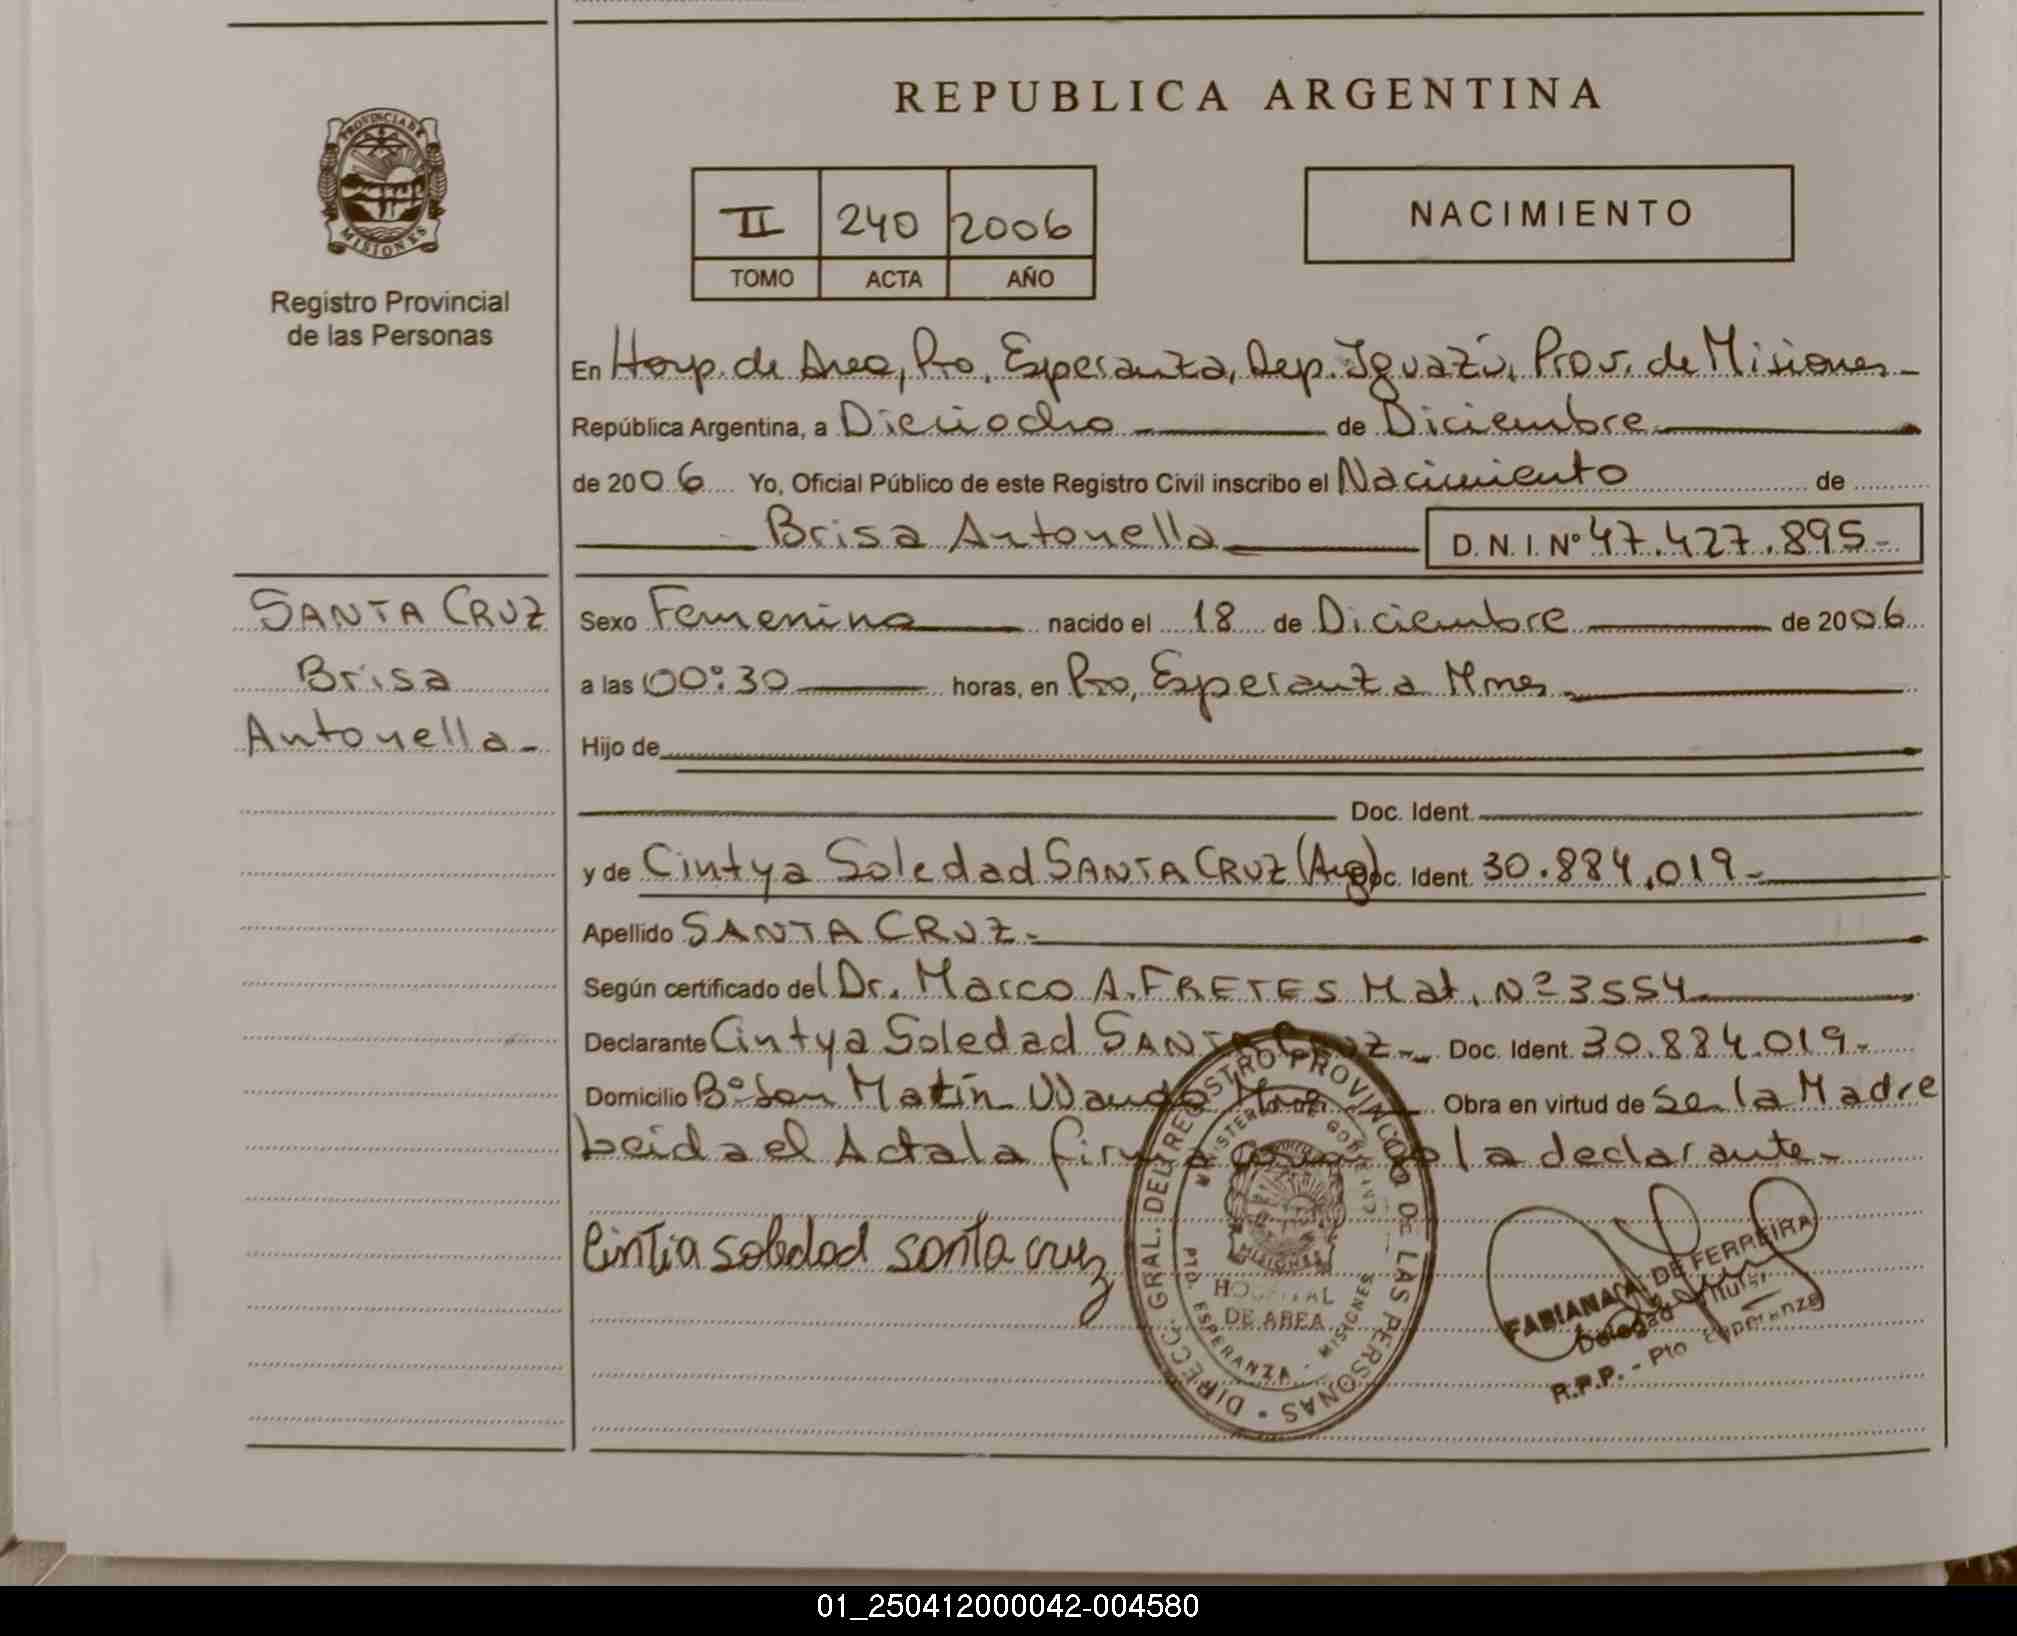 REPUBLICA ARGENTINA
PROVINCIA DE
MISIONES
Registro Provincial
de las Personas
II 240 2006
TOMO ACTA AÑO
NACIMIENTO
En Hosp. de Area, Pto. Esperanza, Dep. Iguazú, Prov. de Misiones-
República Argentina, a Dieciocho de Diciembre
de 2006 Yo, Oficial Público de este Registro Civil inscribo el Nacimiento de
Brisa Antonella D. N. I. Nº 47.427.895-
SANTA CRUZ
Brisa
Antonella-
Sexo Femenino nacido el 18 de Diciembre de 2006
a las 00:30 horas, en Pto, Esperanza Mnes
Hijo de
Doc. Ident.
y de Cintya Soledad SANTA CRUZ (Arg) Doc. Ident. 30.884.019-
Apellido SANTA CRUZ-
Según certificado del Dr. Marco A. FRETES Mat. Nº 3554
Declarante Cintya Soledad SANTA CRUZ- Doc. Ident. 30.884.019-
Domicilio Bº San Matín Wanda Obra en virtud de Se la Madre
Leida el Acta la firma la declarante-
Cintia soledad santa cruz
DIRECC. GRAL. DEL REGISTRO PROVINCIAL DE LAS PERSONAS
MINISTERIO DE GOBIERNO
MISIONES
HOSPITAL
DE AREA
PTO. ESPERANZA - MISIONES
FABIANA DE FERREIRA
R.P.P. - Pto Esperanza
01_250412000042-004580